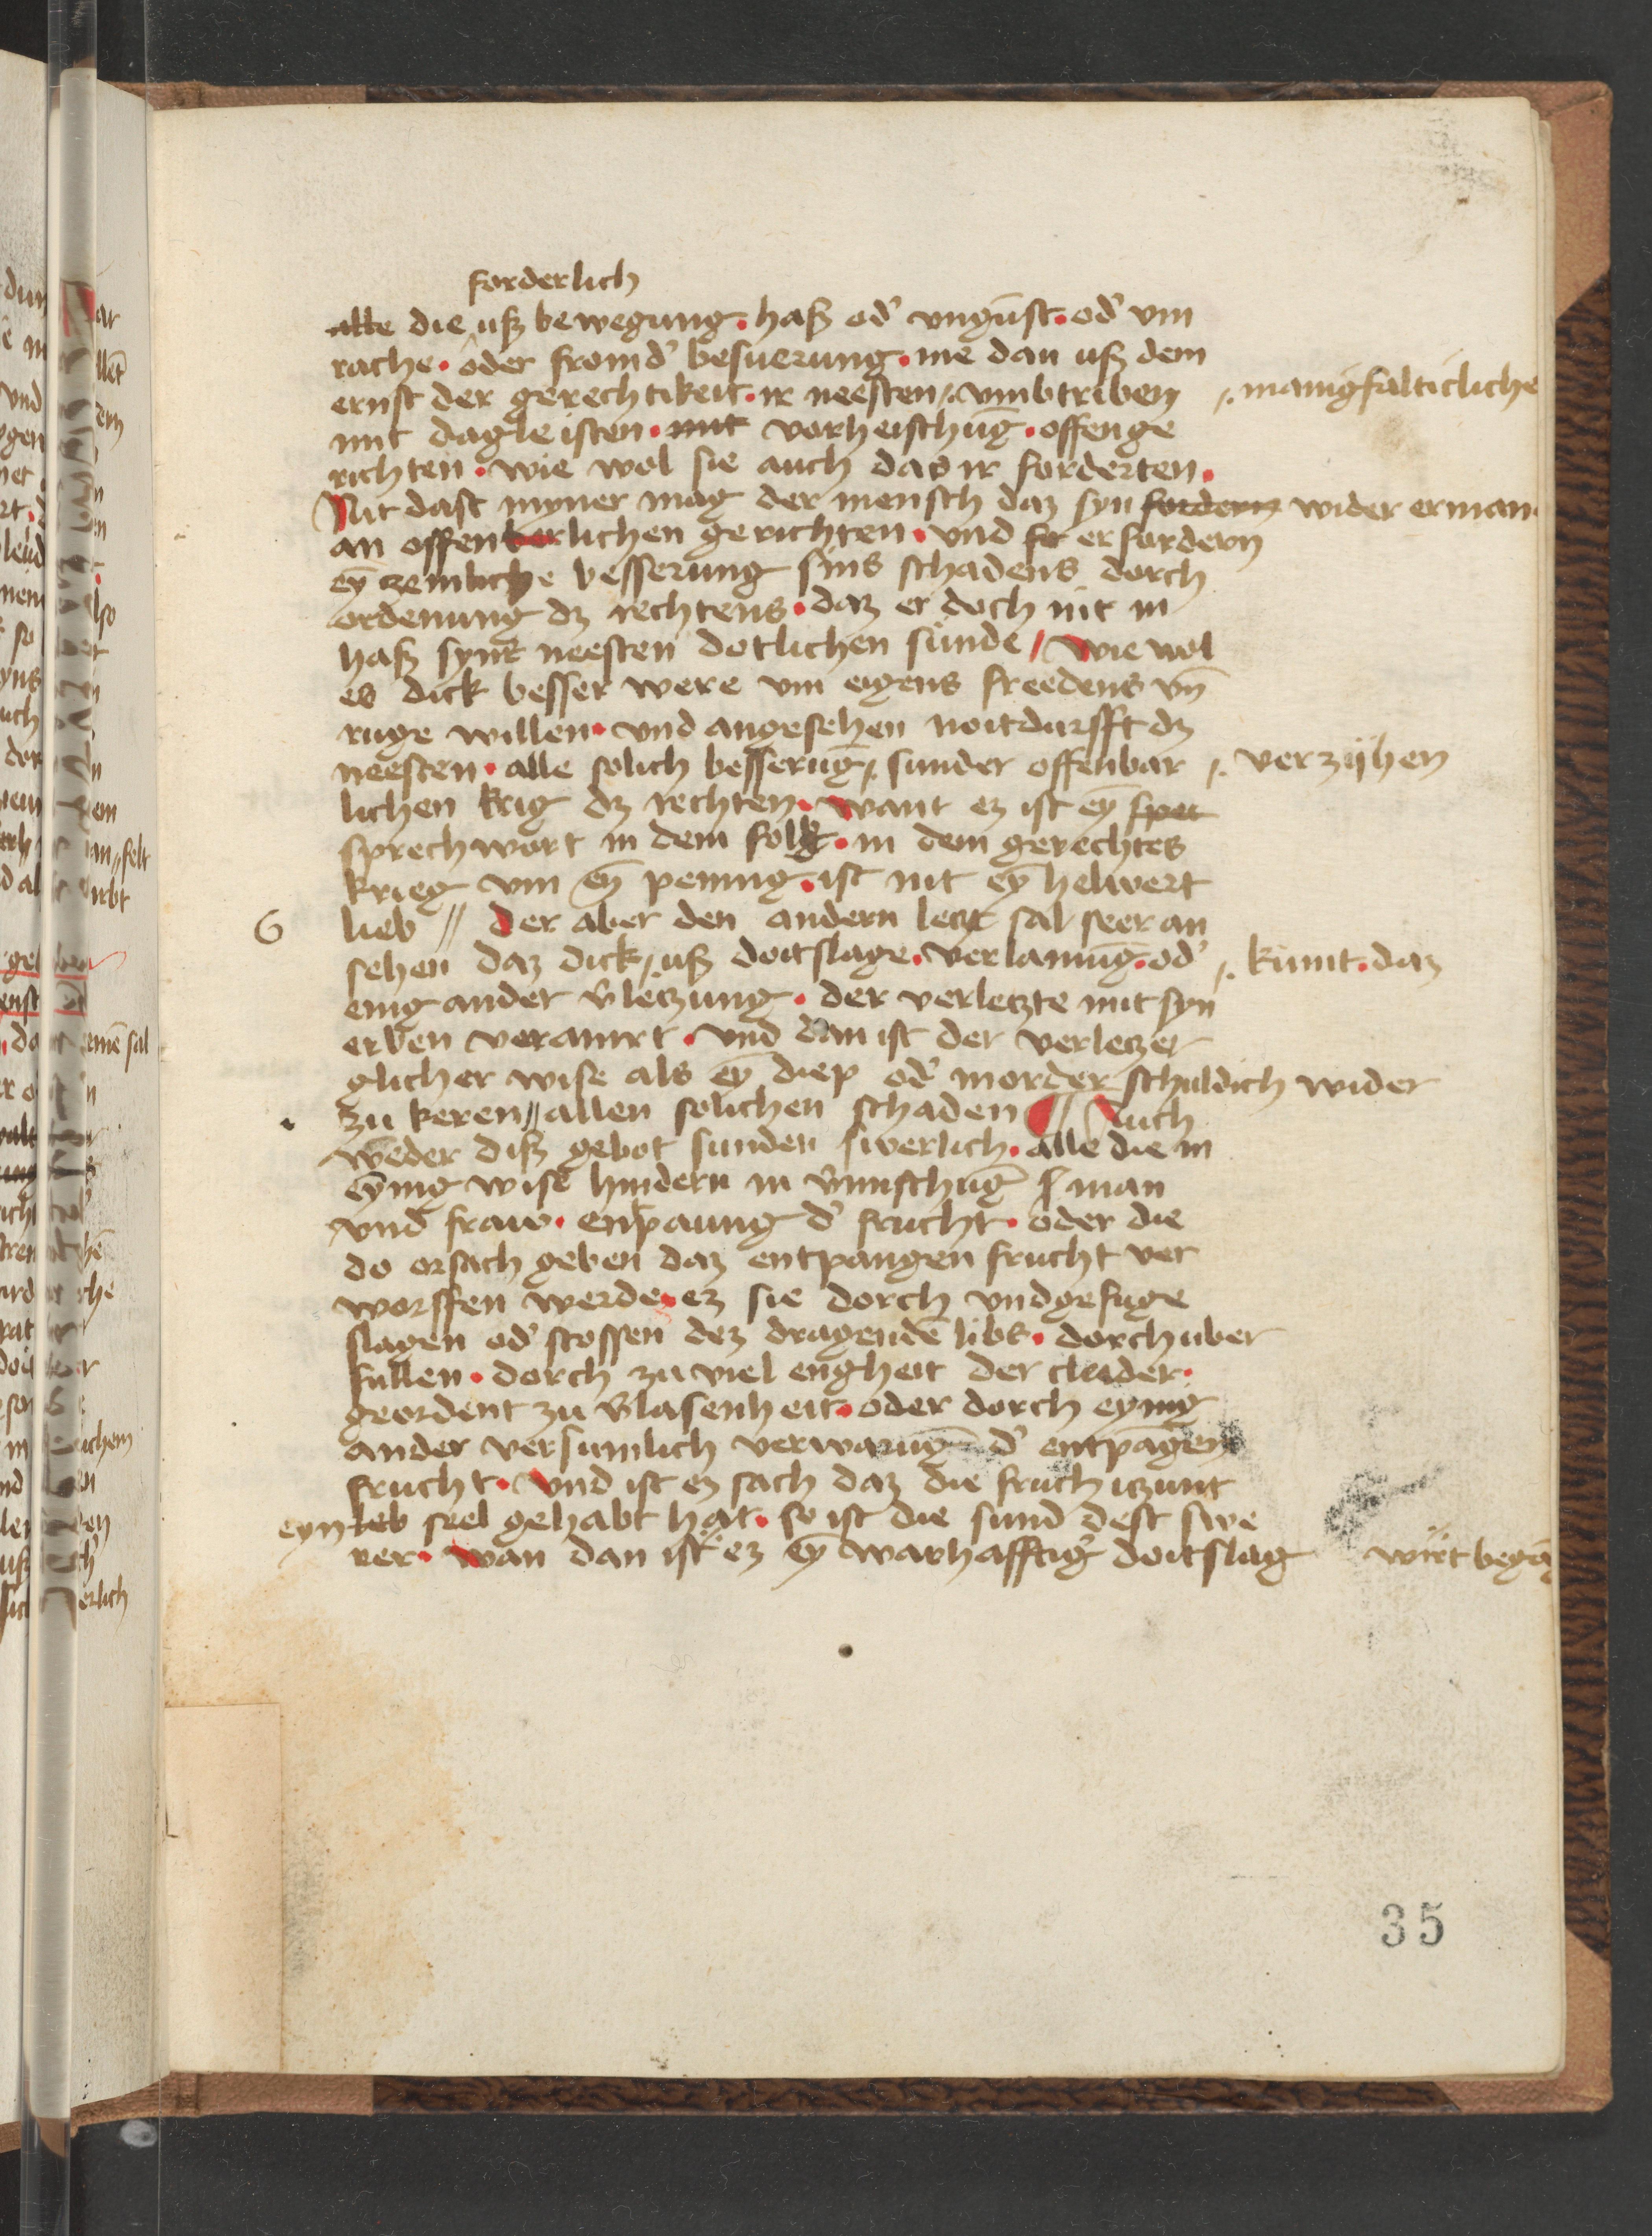 forderlich
alle die uß bewegung. haß od' vngūst. od' vm
rache. oder fromd' besuerung. me dan uß dem
ernst der gerechtikeit. ir neesten ⹓ vmbtriben ⹓ manigfalticliche
mit dagleisten. mit vorheischūg. offen ge
richten. wie wol sie auch das ir forderten.
Nit dast mynner mag der mensch daz syn fordern wider erman
an offenberlichen gerichten. vnd fo er fordern
ey̅ zemliche besserung sins schadens dorch
ordenung dz rechtens. daz er doch nit in
haß synr neesten dotlichen sunde / wie wol
es dick besser were vm eigens freedens vn̅
ruge willen. vnd angesehen noitdurfft dz
neesten. alle solich besserūg ⹓ sunder offenbar ⹓ verzijhen
lichen krig dz rechten. want ez ist ey̅ spet
sprechwort in dem folk. in dem gerechtes
krieg vm ey̅ pennig. ist nit ey̅ helwert
6 lieb // der aber den andern letzt sal seer an
sehen daz dick ⹓ uß doitslage. verlamūg. od' ⹓ kumt. daz
enig ander v̅letzung. der verletzte mit syn
erben veramrt. vnd dan ist der verletzer
glicher wise als ey̅ diep od' morder schuldich wider
zu keren // allen solichen schaden // Auch
weder diß gebot sunden swerlich. alle die in
eynig wise hindern in v̅mischūg man
vnd fraw. entpaung d' frucht. oder die
do orsach geben daz entpangen frucht ver
worffen werde. ez sie dorch vndgefuge
slagen od' stossen dez dragendē libs. dorch uber
fullen. dorch zu viel engheit der cleider.
geordent zu v̅lasenheit. oder dorch eynig
ander versumlich verwarūg d' entpāgen
frucht. Vnd ist ez sach daz die fruch iczunt
eyn leb seel gehabt hat. so ist die sund dest swe
rer. wan dan ist ez ey̅ warhafftig' doitslag wirt begā
35